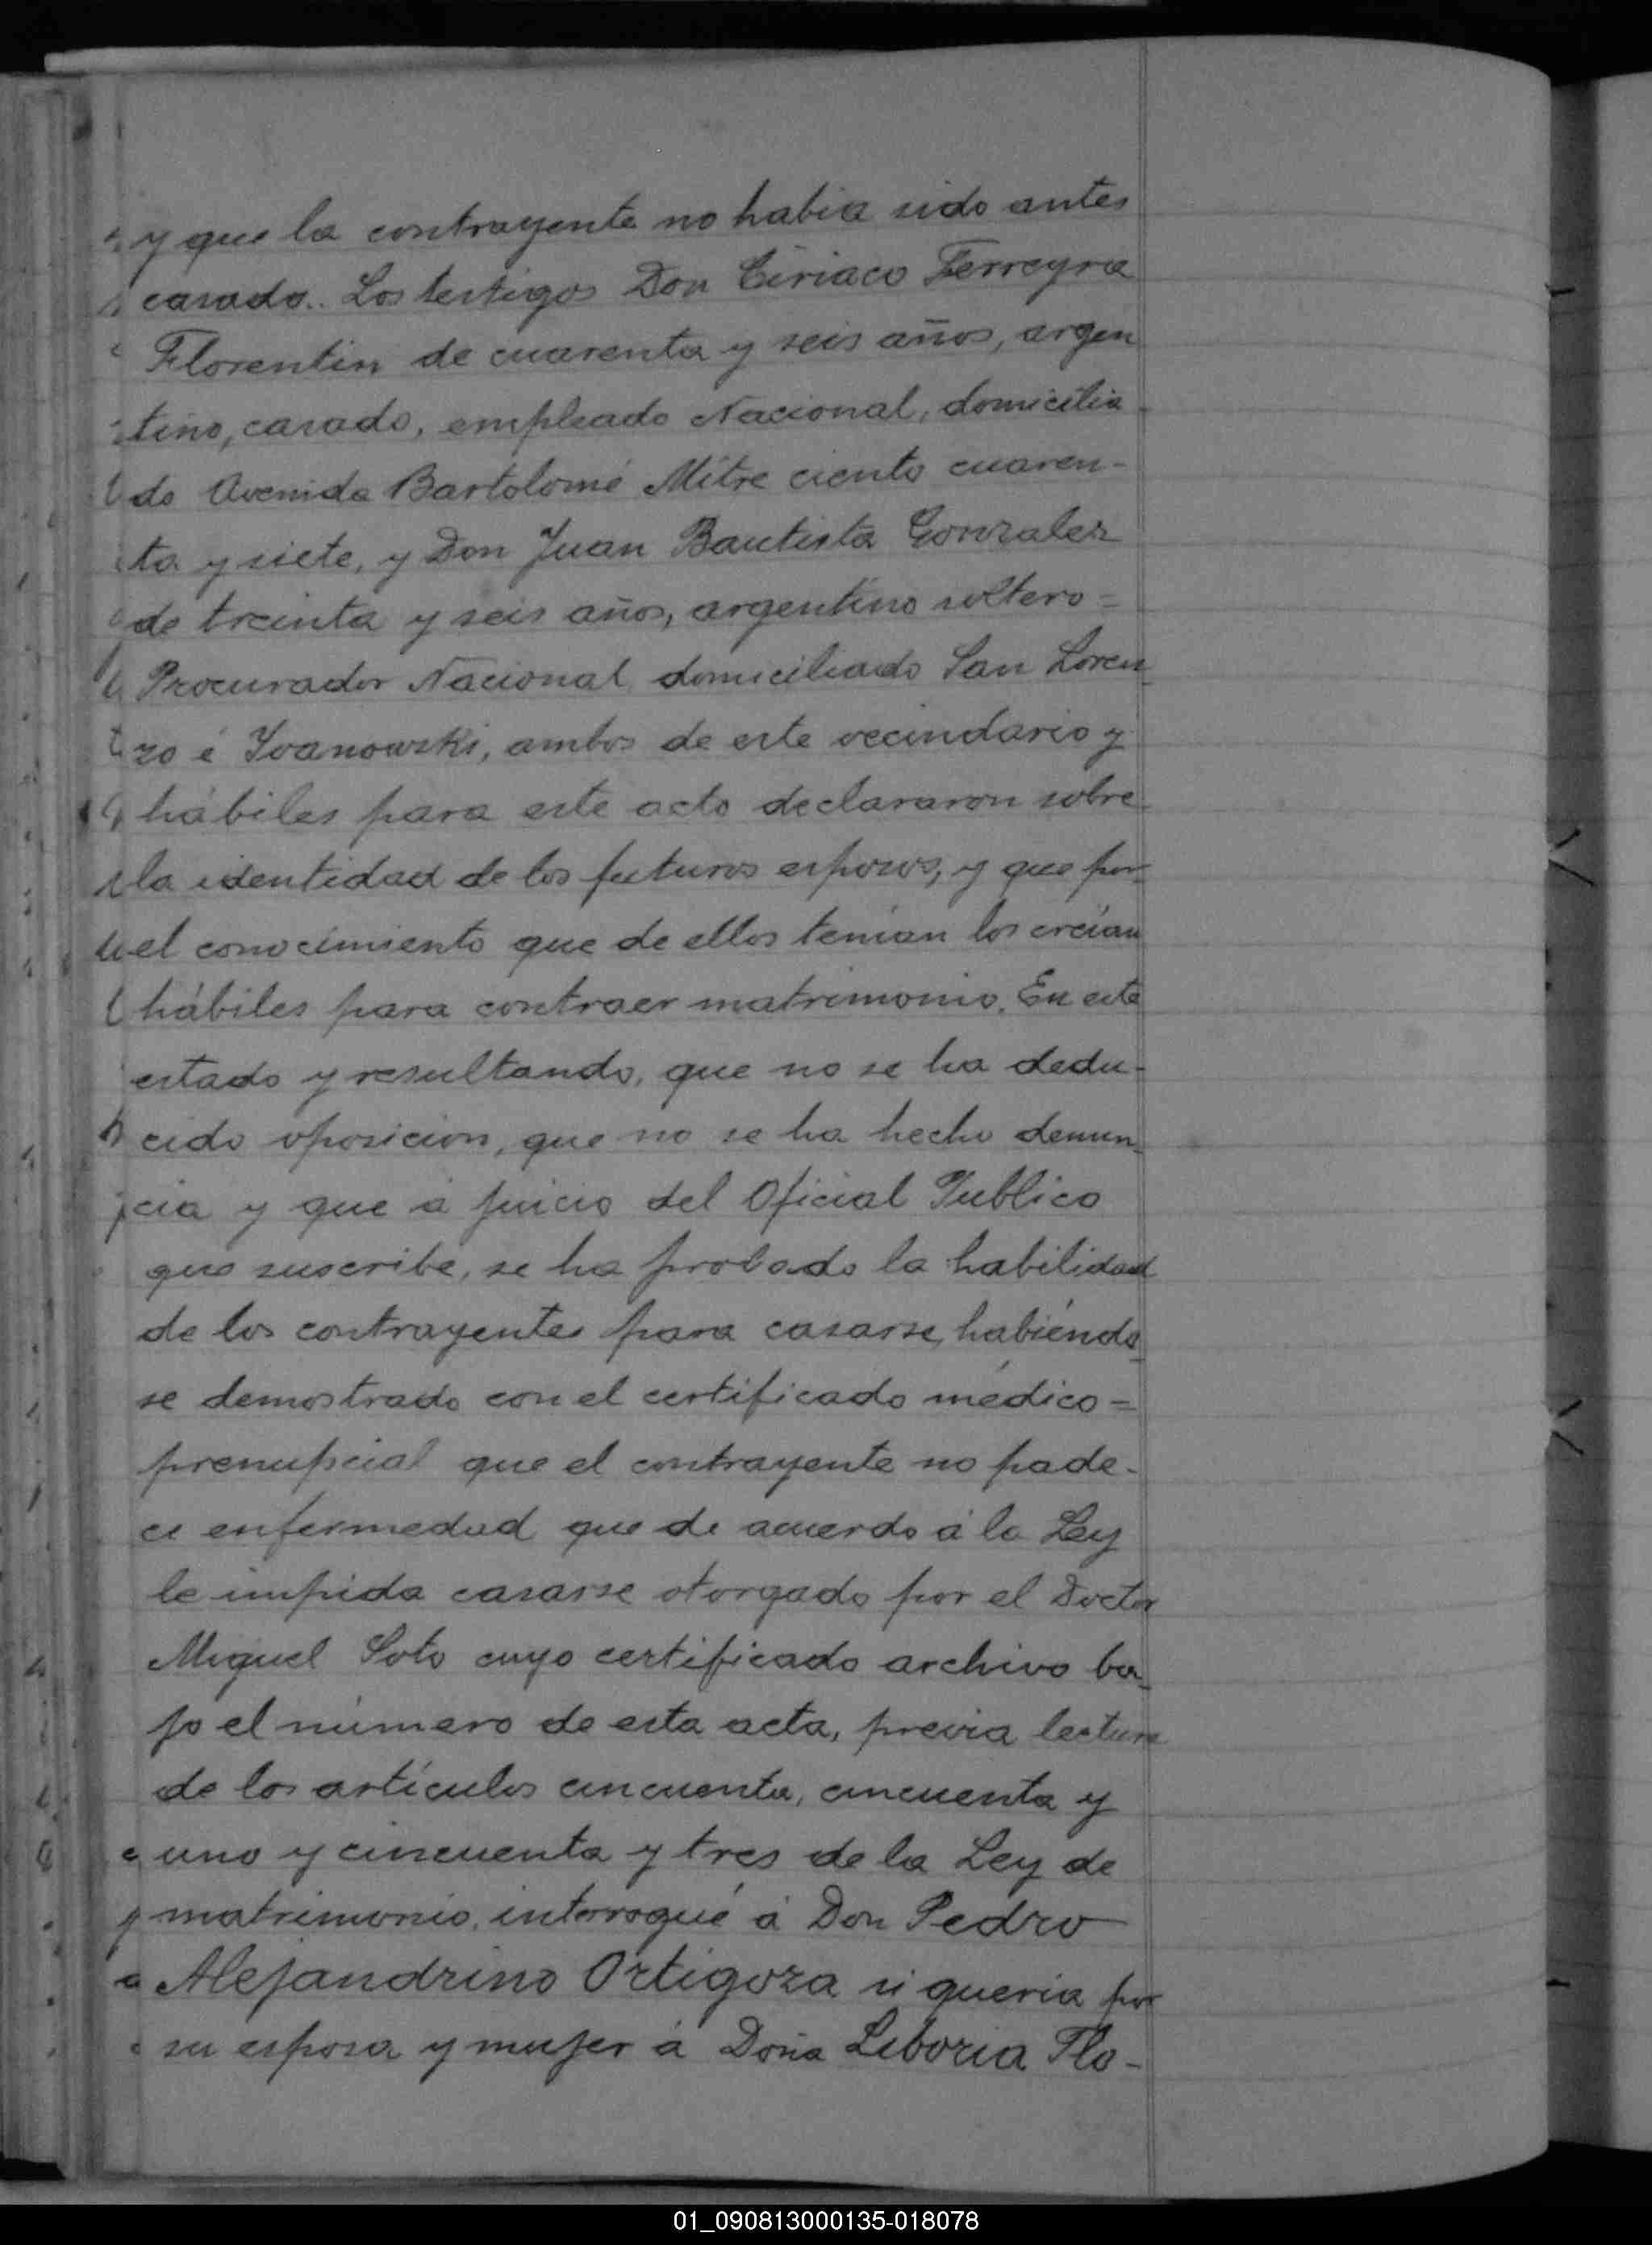 y que la contrayente no habia sido antes
casado. Los testigos Don Ciriaco Ferreyra
Florentin de cuarenta y seis años, argen
tino, casado, empleado Nacional, domicilia
do Avenida Bartolomé Mitre ciento cuaren-
ta y siete, y Don Juan Bautista Gonzalez
de treinta y seis años, argentino soltero =
Procurador Nacional, domiciliado San Loren
zo é Ivanowski, ambos de este vecindario y
hábiles para este acto declararon sobre
la identidad de los futuros esposos, y que por
el conocimiento que de ellos tenian los creían
hábiles para contraer matrimonio. En este
estado y resultando, que no se ha dedu-
cido oposicion, que no se ha hecho denun_
cia y que á juicio del Oficial Publico
que suscribe, se ha probado la habilidad
de los contrayentes para casarse, habiéndo_
se demostrado con el certificado médico =
prenupcial que el contrayente no pade-
ce enfermedad que de acuerdo á la Ley
le impida casarse otorgado por el Doctor
Miguel Soto cuyo certificado archivo ba_
jo el número de esta acta, previa lectura
de los artículos cincuenta, cincuenta y
uno y cincuenta y tres de la Ley de
matrimonio, interrogué á Don Pedro
Alejandrino Ortigoza si queria por
su esposa y mujer á Doña Liboria Flo-
01_090813000135-018078